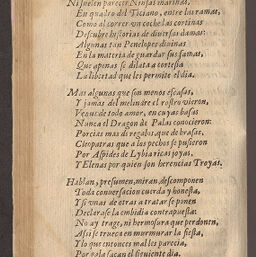 Ni suelen parecer Ninfas marinas,
En quadro del Ticiano, entre las ramas,
Como al correr vn coche las cortinas
Descubre historias de diuersas damas:
Algunas tan Penelopes diuinas
En la materia de guardar sus famas,
Que apenas se dilata a cortesia
La libertad que les permite el dia.
Mas algunas que son menos escasas,
Y jamas del melindre el rostro vieron,
Venus de todo amor, en cuyas basas
Nunca el Dragon de Palas conocieron:
Porcias mas di regalos, que de brasas,
Cleopatras que a los pechos se pusieron
Por Aspides de Lybia ricas joyas,
Y Elenas por quien son herencias Troyas.
Hablan, presumen, miran, descomponen
Toda conuersacion cuerda y honesta,
Y si vnas de otras a tratar se ponen
Declarase la embidia contrapuesta:
No ay trage, ni hermosura que perdonen,
Assi se trueca en murmurar la fiesta,
Y lo que entonces mal les parecia,
Por gala sacan el siguiente dia.